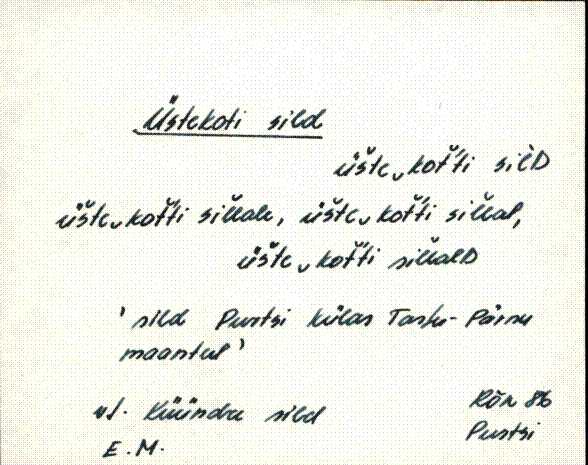 Üstekoti sild
üšte‿kot̆'ti silD
üšte‿kot̆'ti sillale, üšte‿kot̆'ti sillal,
üšte‿kot̆'ti sillalD
'sild Purtsi külas Tartu-Pärnu
maanteel'
vt. Küündre sild
Rõn 86
E.M.
Purtsi